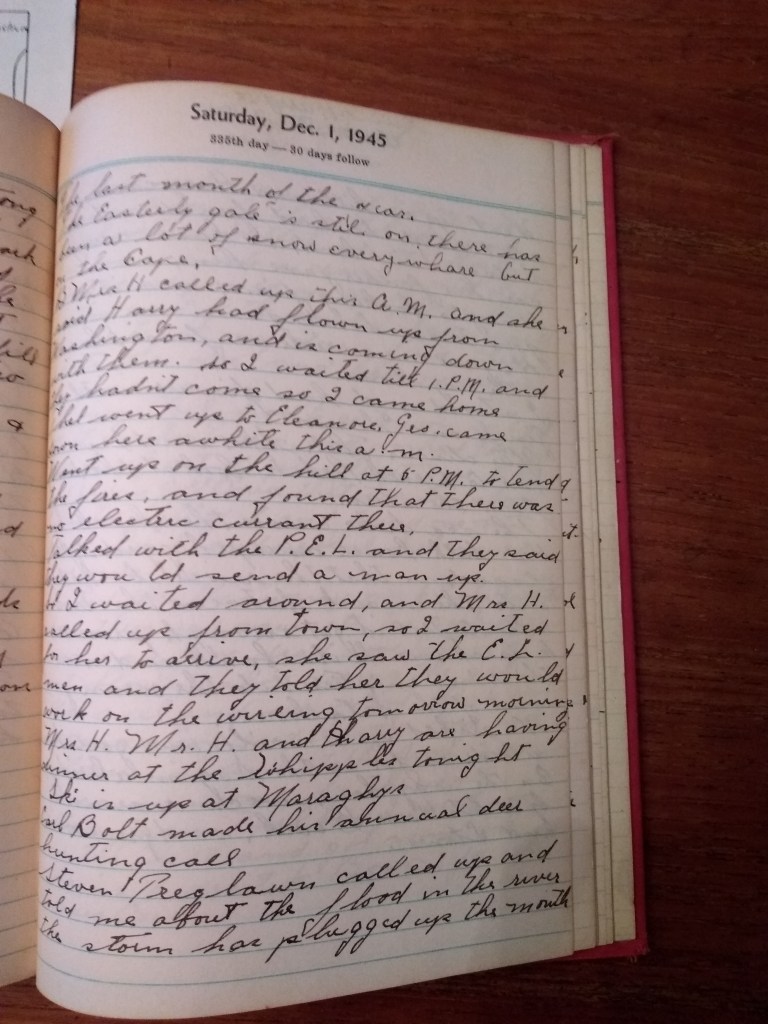 Saturday, Dec. 1, 1945
335th day — 30 days follow
The last month of the year.
The Easterly gale is still on, there has
been a lot of snow everywhare but
on the Cape.
Mrs H called up this A.M. and she
said Harry had flown up from
Washington, and is coming down
with them. so I waited till 1.P.M. and
they hadn't come so I came home
went up to Eleanore, Geo. came
down here awhite this a.m.
Went up on the hill at 5 P.M. to tend
the fires, and found that there was
no electric currant there.
Talked with the P.E.L. and they said
they would send a man up.
I waited around, and Mrs H.
called up from town, so I waited
for her to arrive, she saw the E.L.
men and they told her they would
work on the wireing tomorrow morning
Mrs H. Mr. H. and Harry are having
dinner at the Whipples tonight
is up at Maraghys
Bolt made his annual deer
hunting call
Steven Preglawn called up and
told me about the flood in the river
the storm has plugged up the mouth